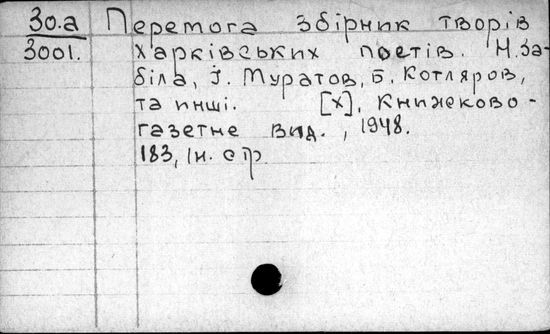 30.а Перемога Збірник творів
3001. Харківських поетів. Н.За-
біла, І. Муратов, Б. Котляров,
та инші. [Х], Книжеково-
газетне вид., 1948.
183, Ін. стр